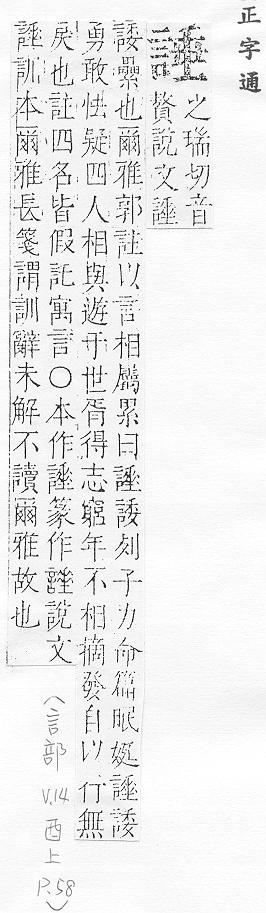 正字通
之瑞切音
贅說文諈
諉纍也爾雅郭註以言相屬累曰諈諉列子力命篇眠娗諈諉
勇敢怯疑四人相與遊于世胥得志窮年不相摘發自以行無
戾也註四名皆假託寓言〇本作諈篆作𧩹說文
諈訓本爾雅長箋謂訓辭未解不讀爾雅故也
(言部 V.14 酉上 P.58)